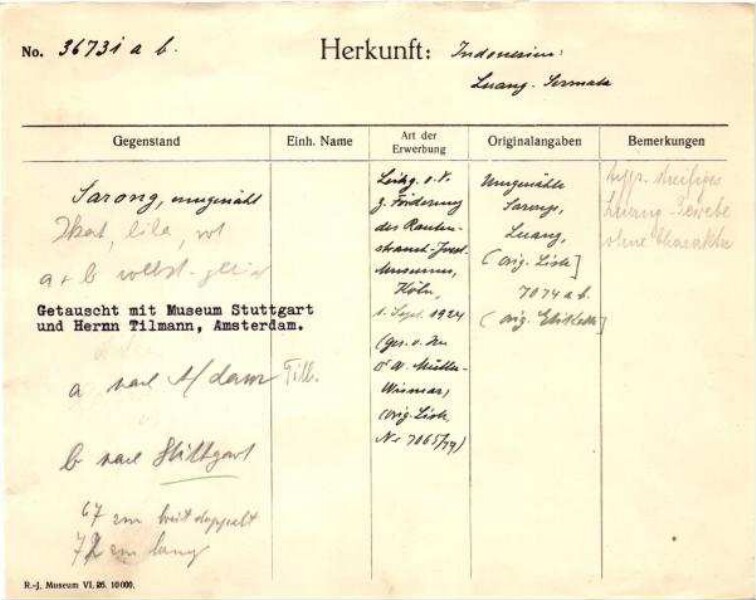 No. 36731 a b.
Herkunft: Indonesien:
Luang-Sermata
Gegenstand
Einh. Name
Art der Erwerbung
Originalangaben
Bemerkungen
Sarong, ungenäht
Ikat, lila, rot
a + b
Getauscht mit Museum Stuttgart
und Hernn Tilmann, Amsterdam.
a nach A/dam Till.
b nach Stuttgart
67 cm breit doppelt
72 cm lang
Leihg. d. V.
z. Förderung
des Rauten-
strauch-Joest-
Museums,
Köln,
1. Sept. 1924
(ges. v.
Dr W. Müller-
Wismar,
orig. Liste
Nr 7065/74)
Ungenähte
Sarongs,
Luang,
(orig. Liste]
7074 a b.
(orig. Etikette]
typ. streifiges
Luang-Gewebe
ohne
R.-J. Museum VI. 26. 10000.